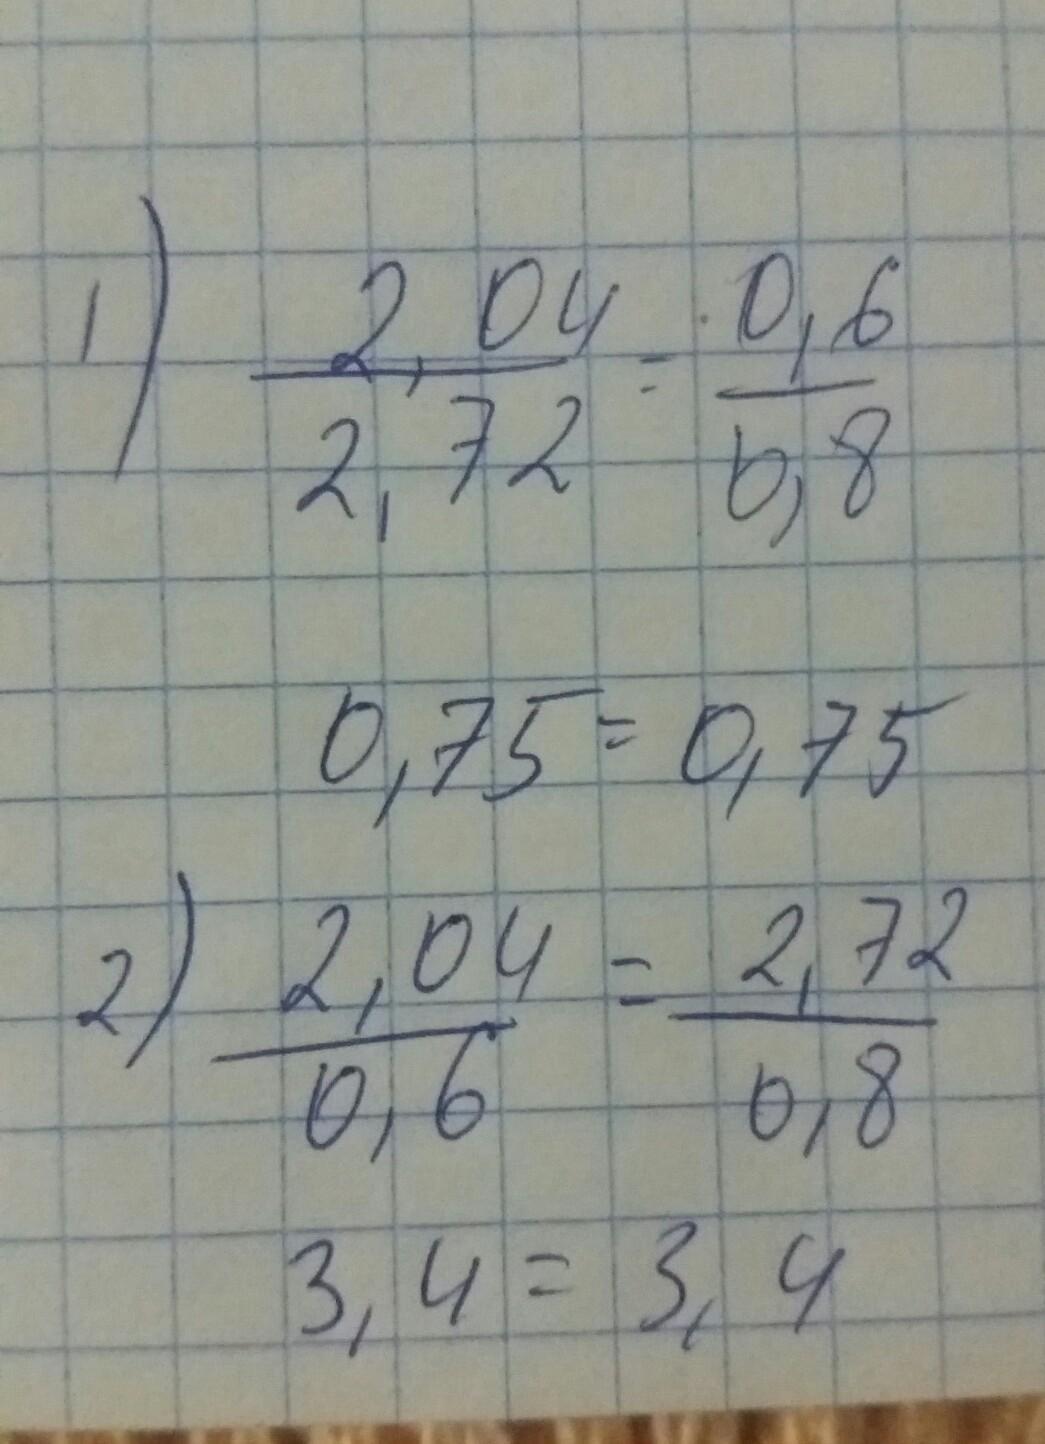 1) 2,04/2,72 = 0,6/0,8
0,75 = 0,75
2) 2,04/0,6 = 2,72/0,8
3,4 = 3,4